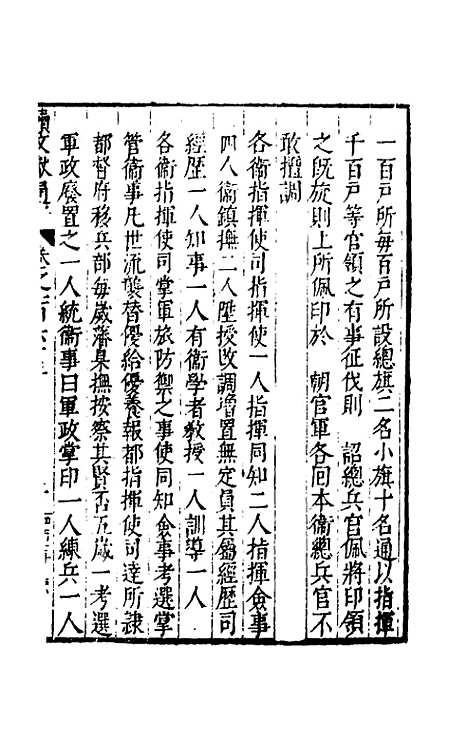 一百戶所每百戶所設總旗二名小旗十名通以指揮
千百戶等官領之有事征伐則　詔總兵官佩將印領
之旣旋則上所佩印於　朝官軍各回本衞總兵官不
敢擅調
各衞指揮使司指揮使一人指揮同知二人指揮僉事
四人衞鎭撫二人陞授改調增置無定員其屬經歷司
經歷一人知事一人有衞學者敎授一人訓導一人
各衞指揮使司掌軍旅防禦之事使同知僉事考選掌
管衞事凡世流襲替優給優養報都指揮使司達所隷
都督府移兵部每歲藩臬撫按察其賢否五歲一考選
軍政廢置之一人統衞事曰軍政掌印一人練兵一人
續文獻通考　卷之